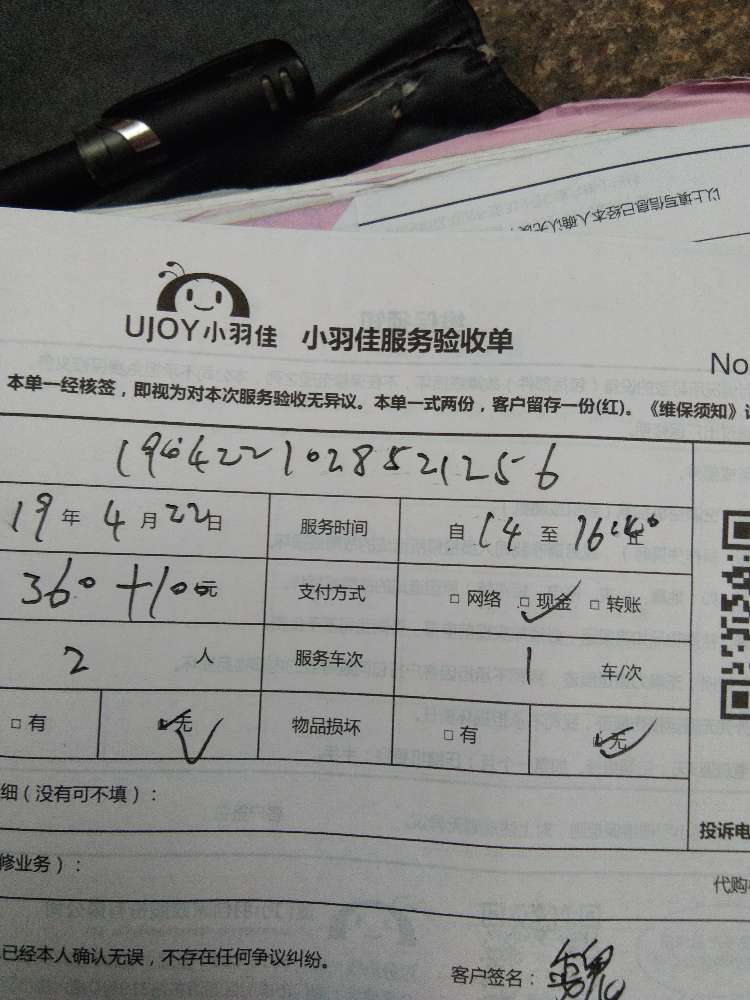 以上填写信息已经本人确认无误，
UJOY小羽佳 小羽佳服务验收单
No
本单一经核签，即视为对本次服务验收无异议。本单一式两份，客户留存一份(红)。《维保须知》
1904221028521256
19年4月22日 服务时间 自14至16:40
360+100元 支付方式 □网络 □现金 □转账
2人 服务车次 1车/次
□有 □无 物品损坏 □有 □无
细（没有可不填）：
投诉电
修业务）：
代购
已经本人确认无误，不存在任何争议纠纷。
客户签名：